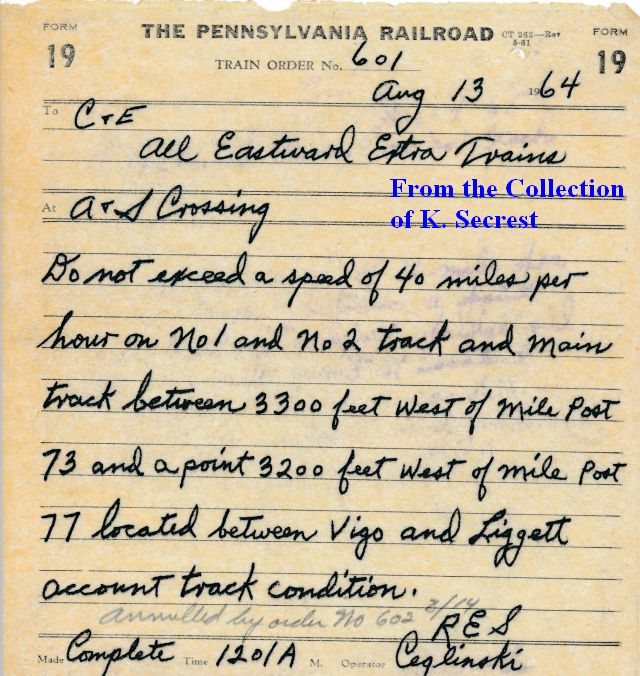 FORM 19 THE PENNSYLVANIA RAILROAD CT 262—Rev 5-61 FORM 19
TRAIN ORDER No. 601
Aug 13 1964
To C+E
All Eastward Extra Trains
From the Collection
At A+S Crossing
of K. Secrest
Do not exceed a speed of 40 miles per
hour on No 1 and No 2 track and main
track between 3300 feet West of Mile Post
73 and a point 3200 feet West of Mile Post
77 located between Vigo and Liggett
account track condition.
Annulled by order No 602 8/14
RES
Made Complete Time 1201A M. Operator Ceglinski